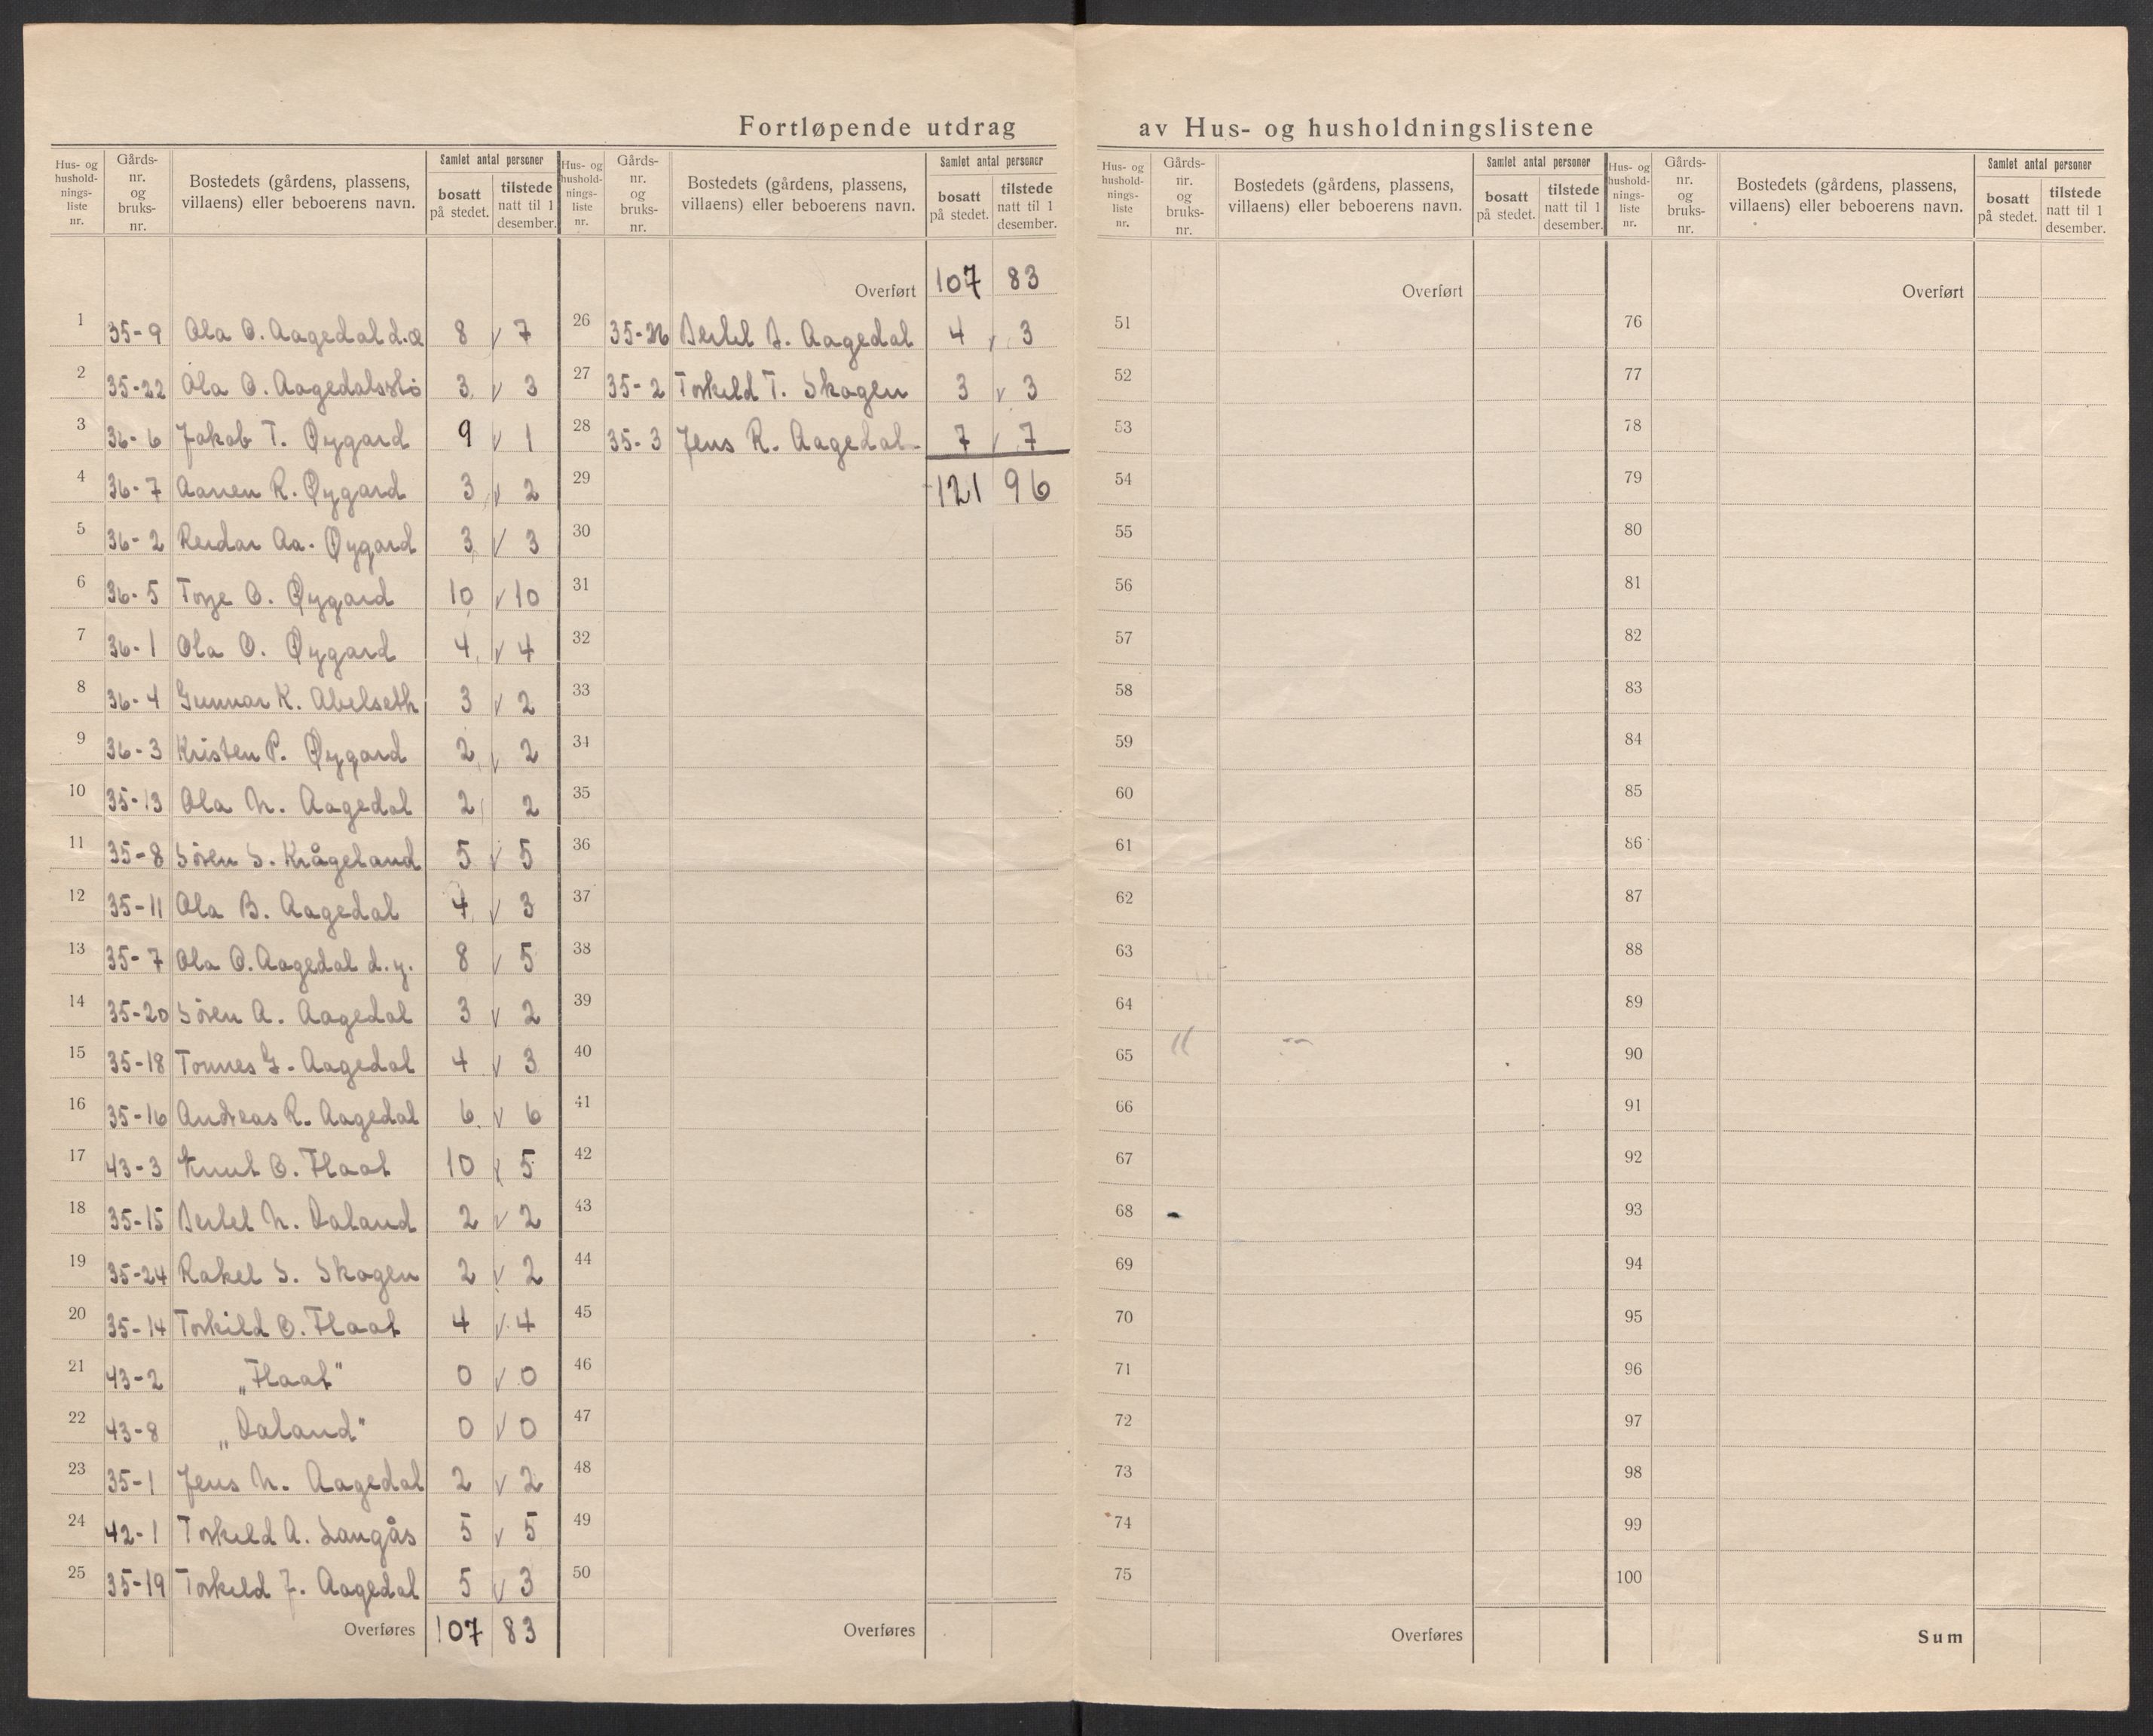 Fortløpende utdrag av Hus- og husholdningslistene
Hus- og hushold-nings-liste nr. Gårds-nr. og bruks-nr. Bostedets (gårdens, plassens, villaens) eller beboerens navn. Samlet antal personer bosatt på stedet. tilstede natt til 1 desember.
1 35-9 Ola O. Aagedal d.æ 8 v 7
2 35-22 Ola O. Aagedalsslo 3 v 3
3 36-6 Jakob T. Øygard 9 v 1
4 36-7 Aanen R. Øygard 3 v 2
5 36-2 Reidar Aa. Øygard 3 v 3
6 36-5 Torje O. Øygard 10 v 10
7 36-1 Ola O. Øygard 4 v 4
8 36-4 Gunnar K. Abelseth 3 v 2
9 36-3 Kristen P. Øygard 2 v 2
10 35-13 Ola N. Aagedal 2 2
11 35-8 Sören S. Krågeland 5 v 5
12 35-11 Ola B. Aagedal 4 v 3
13 35-7 Ola O. Aagedal d.y. 8 v 5
14 35-20 Sören A. Aagedal 3 v 2
15 35-18 Tonnes G. Aagedal 4 v 3
16 35-16 Andreas R. Aagedal 6 v 6
17 43-3 Knut O. Flaat 10 v 5
18 35-15 Bertel N. Daland 2 v 2
19 35-24 Rakel S. Skogen 2 v 2
20 35-14 Torkild O. Flaat 4 v 4
21 43-2 „Flaat" 0 v 0
22 43-8 „Daland" 0 v 0
23 35-1 Jens N. Aagedal 2 v 2
24 42-1 Torkild A. Langås 5 v 5
25 35-19 Torkild J. Aagedal 5 v 3
Overføres 107 83
Hus- og hushold-nings-liste nr. Gårds-nr. og bruks-nr. Bostedets (gårdens, plassens, villaens) eller beboerens navn. Samlet antal personer bosatt på stedet. tilstede natt til 1 desember.
Overført 107 83
26 35-26 Bertel B. Aagedal 4 v 3
27 35-2 Torkild T. Skogen 3 v 3
28 35-3 Jens R. Aagedal 7 v 7
29 121 96
30
31
32
33
34
35
36
37
38
39
40
41
42
43
44
45
46
47
48
49
50
Overføres
Hus- og hushold-nings-liste nr. Gårds-nr. og bruks-nr. Bostedets (gårdens, plassens, villaens) eller beboerens navn. Samlet antal personer bosatt på stedet. tilstede natt til 1 desember.
Overført
51
52
53
54
55
56
57
58
59
60
61
62
63
64
65
66
67
68
69
70
71
72
73
74
75
Overføres
Hus- og hushold-nings-liste nr. Gårds-nr. og bruks-nr. Bostedets (gårdens, plassens, villaens) eller beboerens navn. Samlet antal personer bosatt på stedet. tilstede natt til 1 desember.
Overført
76
77
78
79
80
81
82
83
84
85
86
87
88
89
90
91
92
93
94
95
96
97
98
99
100
Sum